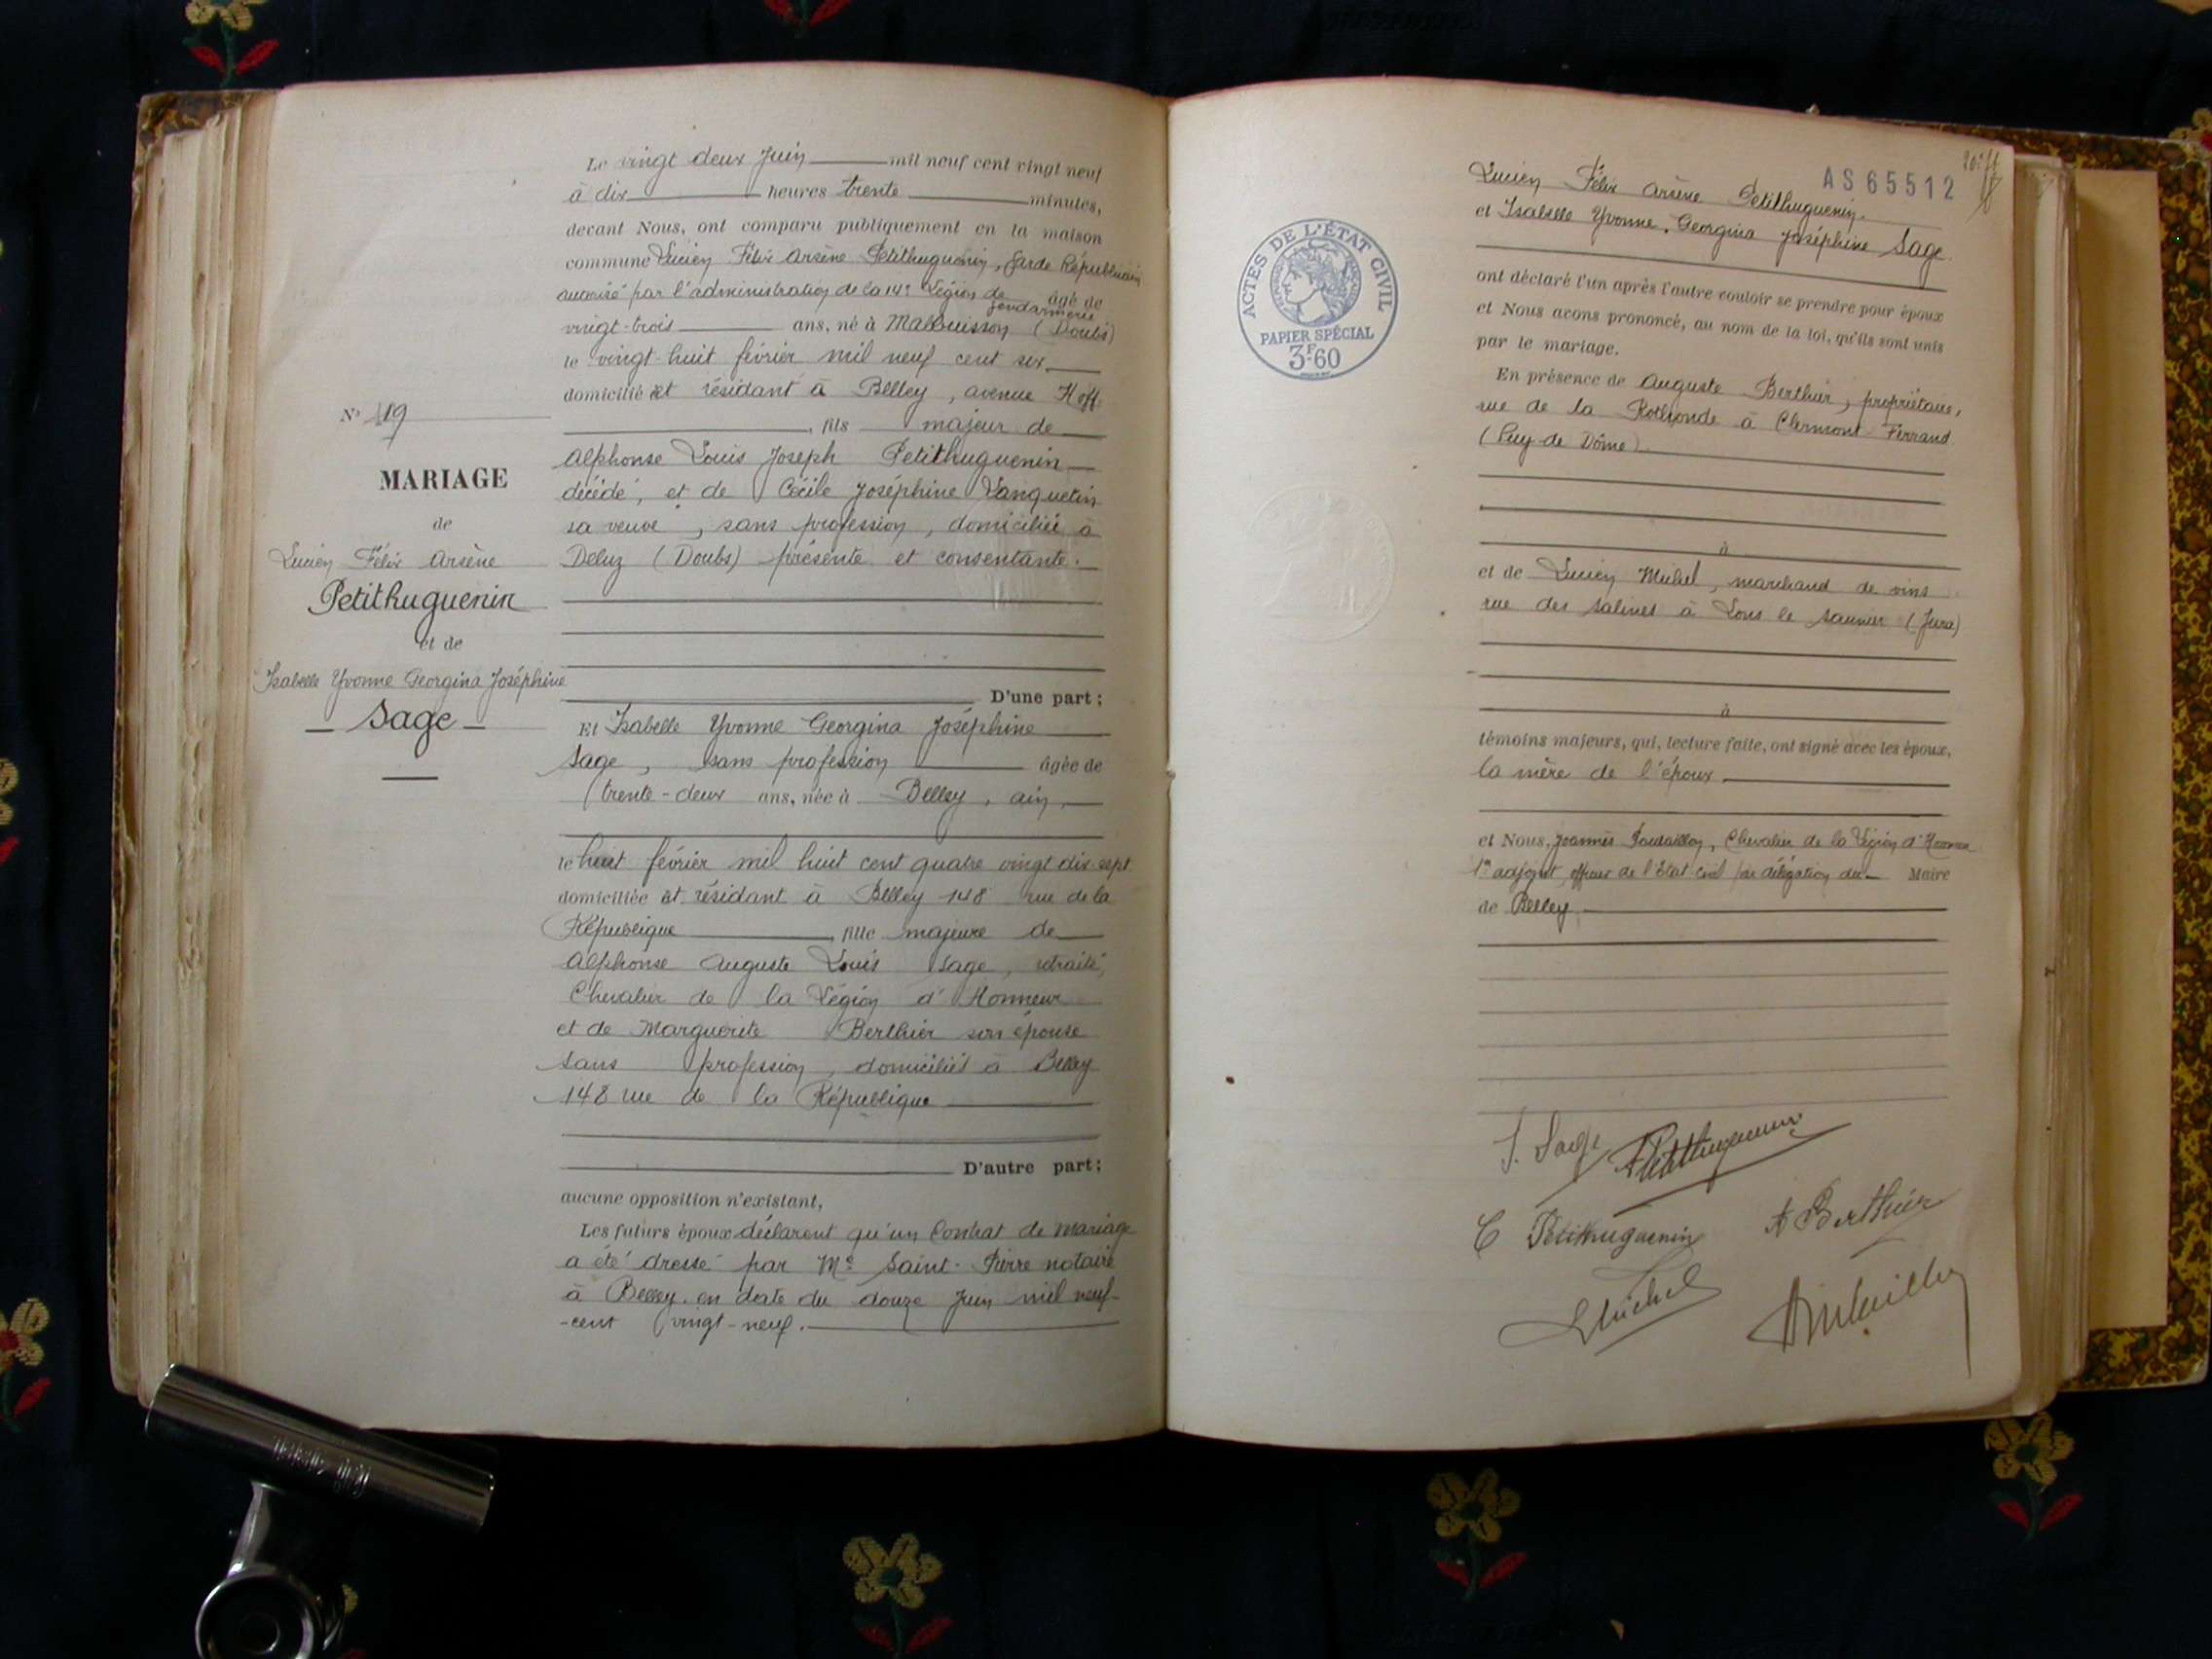 Le vingt deux Juin mil neuf cent vingt neuf
à dix heures trente minutes,
devant Nous, ont comparu publiquement en la maison
commune Lucien Félix Arsène Petithuguenin, Garde Républicain
autorisé par l'administration de la 14e Légion de gendarmerie âgé de
vingt-trois ans, né à Malbuisson (Doubs)
le vingt-huit février mil neuf cent six
domicilié et résidant à Belley, avenue Hoff
, fils majeur de
Alphonse Louis Joseph Petithuguenin
décédé, et de Cécile Joséphine Vanquetin
sa veuve, sans profession, domiciliée à
Deluz (Doubs) présente et consentante.
D'une part;
Et Isabelle Yvonne Georgina Joséphine
Sage, sans profession âgée de
trente-deux ans, née à Belley, ain,
le huit février mil huit cent quatre vingt dix-sept
domiciliée et résidant à Belley 148 rue de la
République, fille majeure de
Alphonse Auguste Louis Sage, retraité,
Chevalier de la Légion d'Honneur
et de Marguerite Berthier son épouse
sans profession, domiciliés à Belley
148 rue de la République
D'autre part;
aucune opposition n'existant,
Les futurs époux déclarent qu'un Contrat de mariage
a été dressé par Me Saint-Pierre notaire
à Belley en date du douze Juin mil neuf-
-cent vingt-neuf.
No 19
MARIAGE
de
Lucien Félix Arsène
Petithuguenin
et de
Isabelle Yvonne Georgina Joséphine
Sage
AS 65512
Lucien Félix Arsène Petithuguenin.
et Isabelle Yvonne, Georgina Joséphine Sage
ACTES DE L'ÉTAT CIVIL
PAPIER SPÉCIAL
3F.60
ont déclaré l'un après l'autre vouloir se prendre pour époux
et Nous avons prononcé, au nom de la loi, qu'ils sont unis
par le mariage.
En présence de Auguste Berthier, propriétaire,
rue de la Rotonde à Clermont-Ferrand
(Puy-de-Dôme)
à
et de Lucien Michel, marchand de vins
rue des Salines à Lons le Saunier (Jura)
à
témoins majeurs, qui, lecture faite, ont signé avec les époux,
la mère de l'époux
et Nous, Joannès , Chevalier de la Légion d'Honneur
1er adjoint, officier de l'Etat Civil par délégation du Maire
de Belley
I. Sage
Petithuguenin
C Petithuguenin
A Berthier
L Michel